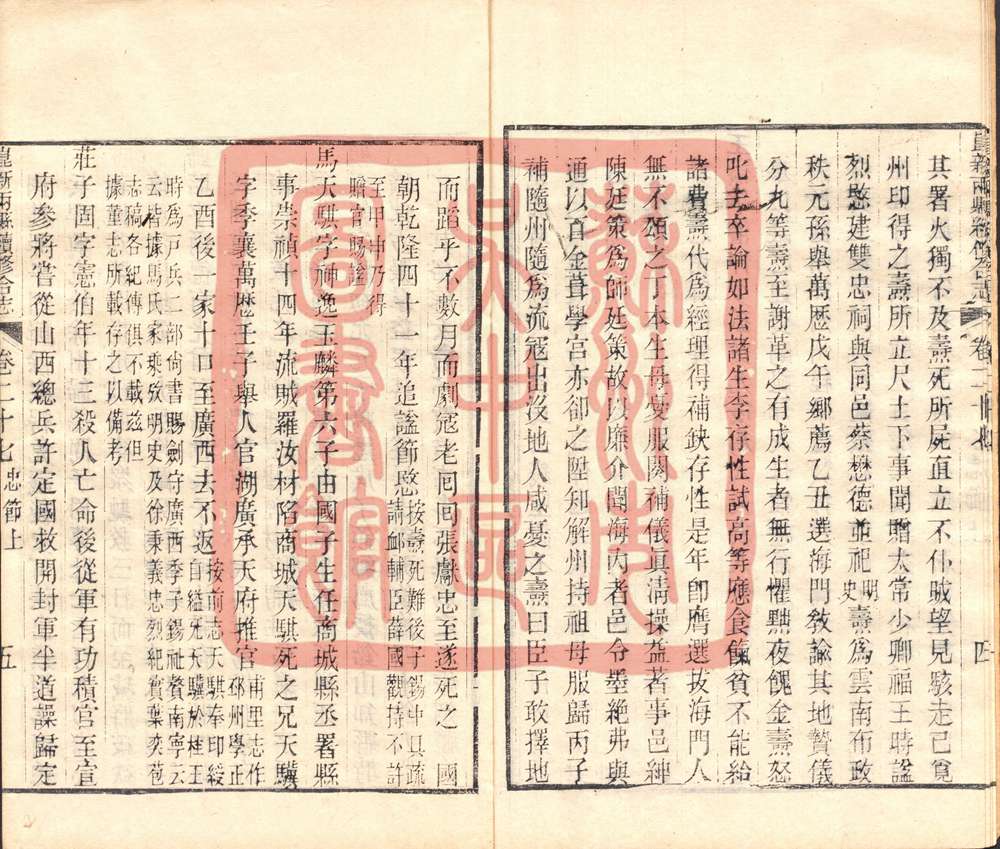 其署火獨不及燾死所屍直立不仆賊望見駭走已覓
州印得之燾所立尺土下事聞贈太常少卿福王時諡
烈愍建雙忠祠與同邑蔡懋德並祀明史燾爲雲南布政
秩元孫與萬歷戊午鄉薦乙丑選海門敎諭其地贄儀
分九等燾至謝革之有成生者無行懼黜夜餽金燾怒
叱去卒論如法諸生李存性試高等應食餼貧不能給
諸費燾代爲經理得補缺存性是年卽膺選拔海門人
無不頌之丁本生母憂服闋補儀眞淸操益著事邑紳
陳廷策爲師廷策故以廉介聞海內者邑令墨絶弗與
通以百金葺學宮亦卻之陞知解州持祖母服歸丙子
補隨州隨爲流寇出沒地人咸憂之燾曰臣子敢擇地
而蹈乎不數月而劇寇老回回張獻忠至遂死之 國
朝乾隆四十一年追諡節愍按燾死難後子錫中具疏請䘏輔臣薛國觀持不許至甲申乃得贍官賜諡
馬天騏字神逸玉麟第六子由國子生任商城縣丞署縣
事崇禎十四年流賊羅汝材陷商城天騏死之兄天驥
字季襄萬歷壬子舉人官湖廣承天府推官甫里志作邳州學正
乙酉後一家十口至廣西去不返按前志天騏奉印綬自縊死天驥於桂王時爲戶兵二部尚書賜劍守廣西季子錫祉贅南寧云云皆據馬氏家乘攷明史及徐秉義忠烈紀實葉奕苞志稿各紀傳俱不載茲但據董志所載存之以備考
莊子固字憲伯年十三殺人亡命後從軍有功積官至宣
府參將嘗從山西總兵許定國救開封軍半道譟歸定
崑新兩縣續修合志
卷二十七 忠節上
五
卷二十七
四